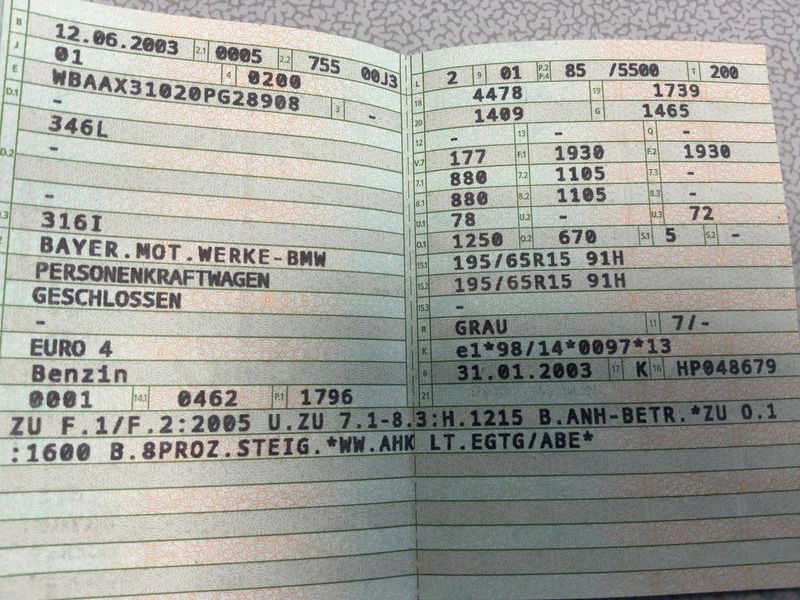 B 12.06.2003 2.1 0005 2.2 755 00J3
J 01 4 0200
E WBAAX31020PG28908 3 -
D.1 -
346L
D.2 -
-
.3 316I
2 BAYER.MOT.WERKE-BMW
PERSONENKRAFTWAGEN
GESCHLOSSEN
-
EURO 4
Benzin
0001 14.1 0462 P.1 1796
L 2 9 01 P.2 P.4 85 /5500 T 200
18 4478 19 1739
20 1409 G 1465
12 - 13 - Q -
V.7 177 F.1 1930 F.2 1930
7.1 880 7.2 1105 7.3 -
8.1 880 8.2 1105 8.3 -
U.1 78 U.2 - U.3 72
O.1 1250 O.2 670 S.1 5 S.2 -
15.1 195/65R15 91H
15.2 195/65R15 91H
15.3 -
R GRAU 11 7/-
K e1*98/14*0097*13
6 31.01.2003 17 K 16 HP048679
21
ZU F.1/F.2:2005 U.ZU 7.1-8.3:H.1215 B.ANH-BETR.*ZU O.1
:1600 B.8PROZ.STEIG.*WW.AHK LT.EGTG/ABE*